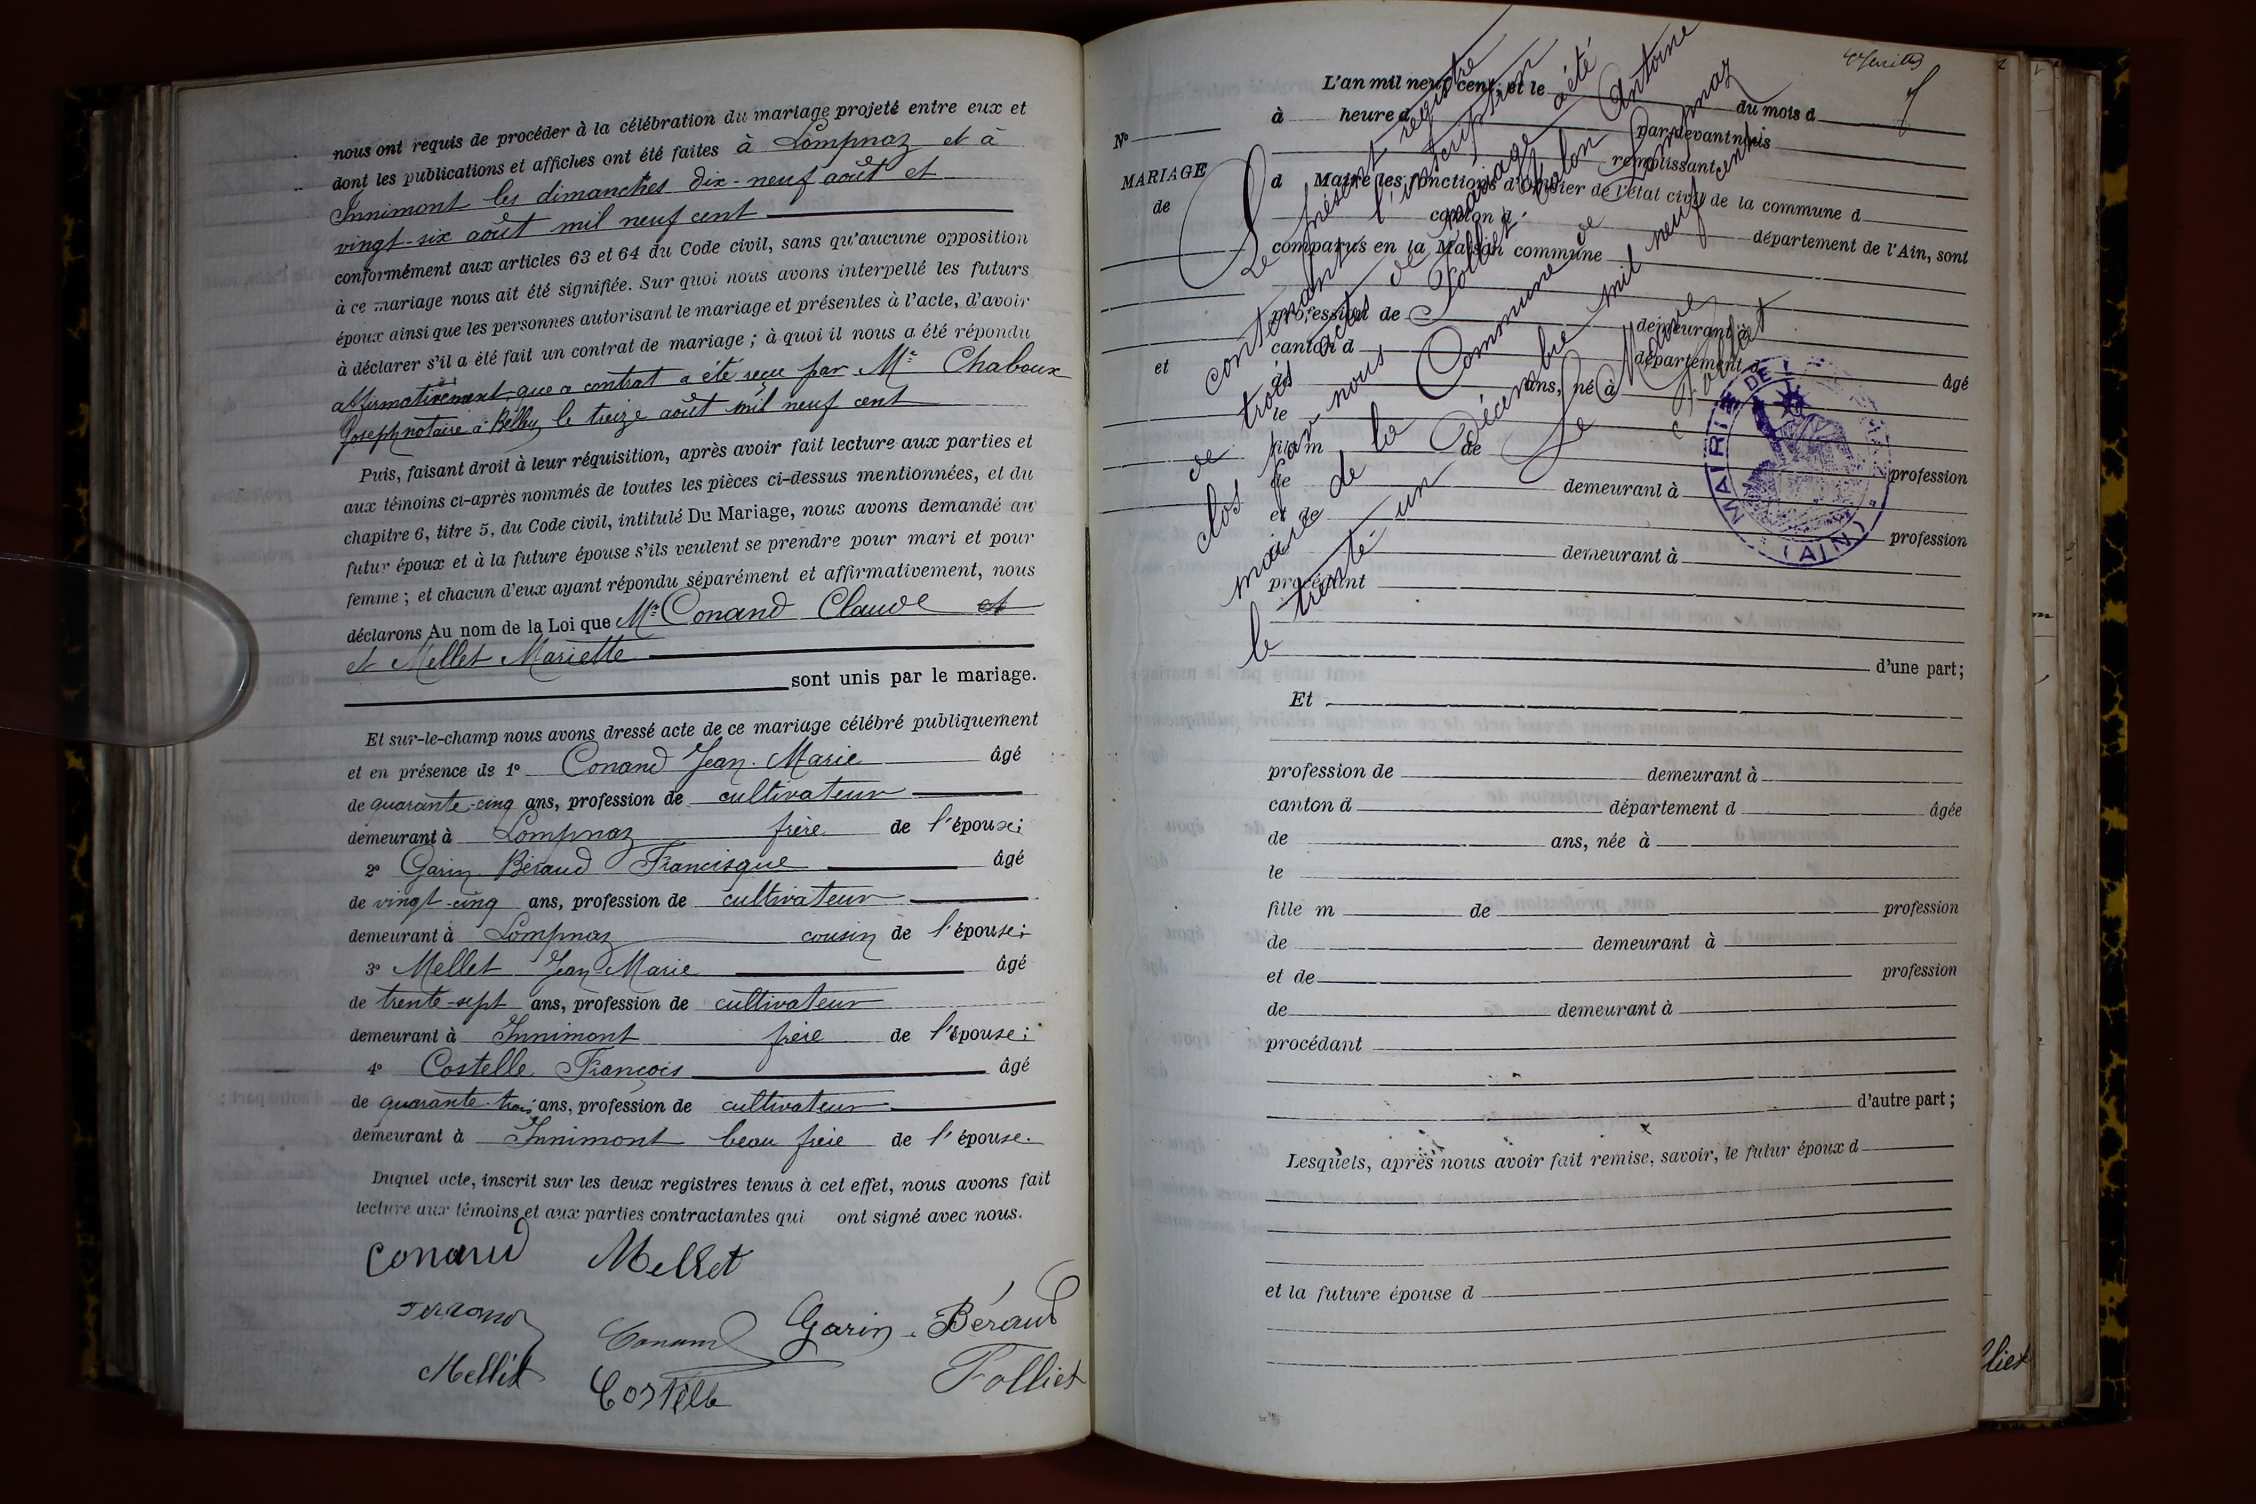 nous ont requis de procéder à la célébration du mariage projeté entre eux et
dont les publications et affiches ont été faites à Lompnaz et à
Innimont les dimanches dix-neuf août et
vingt-six août mil neuf cent
conformément aux articles 63 et 64 du Code civil, sans qu'aucune opposition
à ce mariage nous ait été signifiée. Sur quoi nous avons interpellé les futurs
époux ainsi que les personnes autorisant le mariage et présentes à l'acte, d'avoir
à déclarer s'il a été fait un contrat de mariage ; à quoi il nous a été répondu
affirmativement que a contrat a été reçu par Me Chaboux
Joseph notaire à Belley le treize août mil neuf cent
Puis, faisant droit à leur réquisition, après avoir fait lecture aux parties et
aux témoins ci-après nommés de toutes les pièces ci-dessus mentionnées, et du
chapitre 6, titre 5, du Code civil, intitulé Du Mariage, nous avons demandé au
futur époux et à la future épouse s'ils veulent se prendre pour mari et pour
femme ; et chacun d'eux ayant répondu séparément et affirmativement, nous
déclarons Au nom de la Loi que Mr Conand Claude et
et Mellet Mariette
sont unis par le mariage.
Et sur-le-champ nous avons dressé acte de ce mariage célébré publiquement
et en présence de 1° Conand Jean-Marie âgé
de quarante-cinq ans, profession de cultivateur
demeurant à Lompnaz frère de l'épouse;
2° Garin Béraud Francisque âgé
de vingt-cinq ans, profession de cultivateur
demeurant à Lompnaz cousin de l'épouse;
3° Mellet Jean Marie âgé
de trente-sept ans, profession de cultivateur
demeurant à Innimont frère de l'épouse;
4° Costelle François âgé
de quarante-trois ans, profession de cultivateur
demeurant à Innimont beau frère de l'épouse.
Duquel acte, inscrit sur les deux registres tenus à cet effet, nous avons fait
lecture aux témoins et aux parties contractantes qui ont signé avec nous.
Conand Mellet
Conand Garin-Béraud
Mellet Costelle Folliet
L'an mil neuf cent, et le du mois d
à heure d par devant nous
N° remplissant
MARIAGE d Maire les fonctions d'officier de l'état civil de la commune d
de canton d département de l'Ain, sont
comparus en la Maison commune
profession de demeurant à
canton d département d âgé
et de ans, né à
le
fils m de profession
de demeurant à
et de profession
demeurant à
procédant
d'une part;
Et
profession de demeurant à
canton d département d âgée
de ans, née à
le
fille m de profession
de demeurant à
et de profession
de demeurant à
procédant
d'autre part ;
Lesquels, après nous avoir fait remise, savoir, le futur époux d
et la future épouse d
Le présent registre
contenant l'inscription
de trois actes de mariage a été
clos par nous Folliet Antoine
maire de la Commune de Lompnaz
le trente-un décembre mil neuf cent
Le Maire
Folliet
MAIRIE DE
(AIN)
lliet